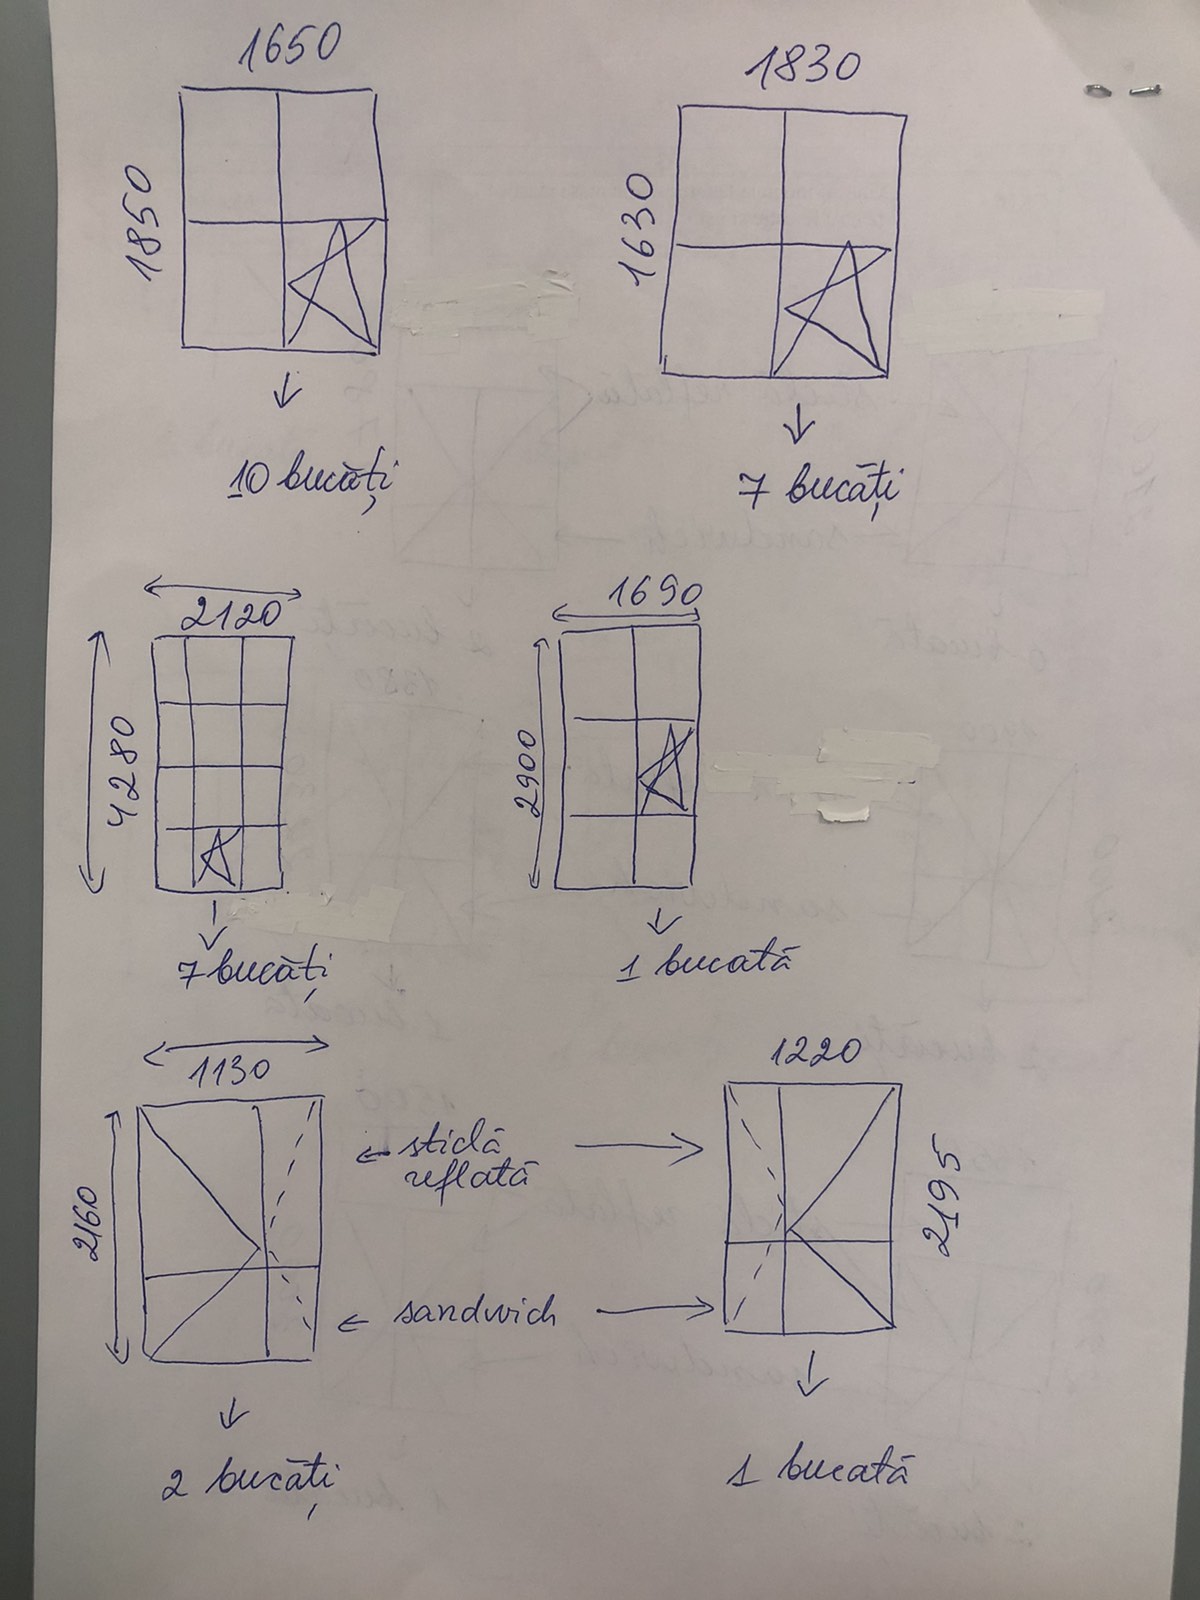 1650
1830
1850
1630
10 bucăți
7 bucăți
2120
1690
4280
2900
7 bucăți
1 bucată
1130
1220
sticlă
reflată
2160
2195
sandwich
2 bucăți
1 bucată